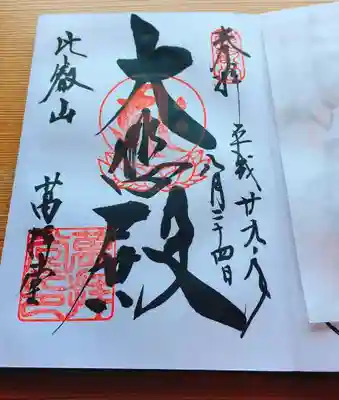 奉拝 平成廿九年
八月二十四日
大悲殿
比叡山
萬拝堂